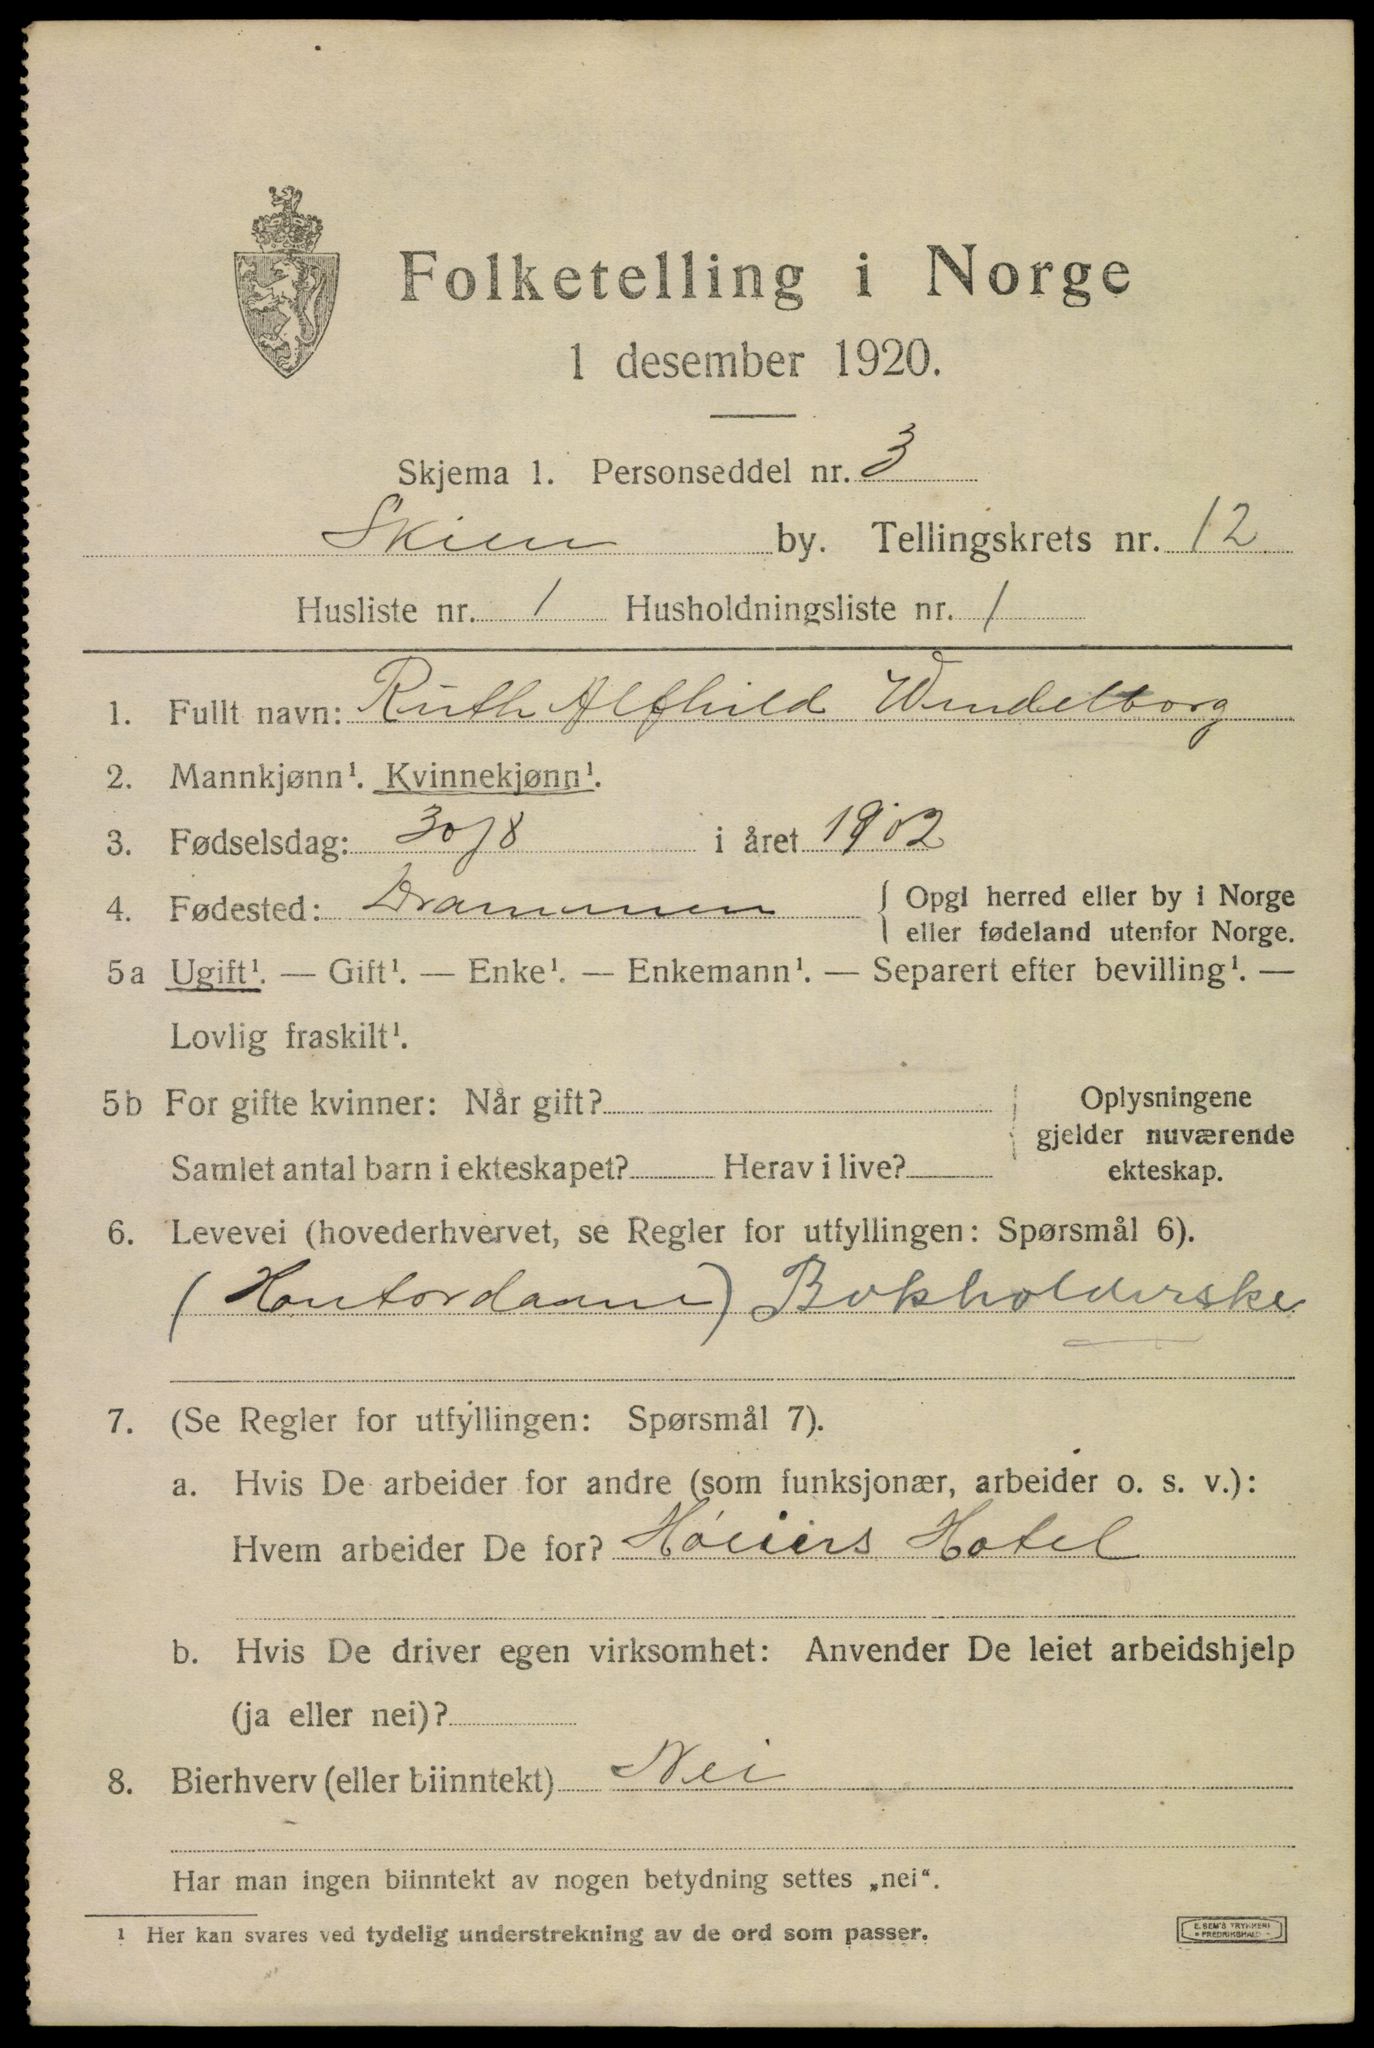 Folketelling i Norge
1 desember 1920.
Skjema 1. Personseddel nr. 3
Skien by. Tellingskrets nr. 12
Husliste nr. 1 Husholdningsliste nr. 1
1. Fullt navn: Ruth Alfhild Windelborg
2. Mannkjønn¹. Kvinnekjønn¹.
3. Fødselsdag: 30/8 i året 1902
4. Fødested: Drammen { Opgl herred eller by i Norge
eller fødeland utenfor Norge.
5a Ugift¹. — Gift¹. — Enke¹. — Enkemann¹. — Separert efter bevilling¹. —
Lovlig fraskilt¹.
5b For gifte kvinner: Når gift?
Samlet antal barn i ekteskapet? Herav i live?
Oplysningene
gjelder nuværende
ekteskap.
6. Levevei (hovederhvervet, se Regler for utfyllingen: Spørsmål 6).
(Kontordame) Bokholderske
7. (Se Regler for utfyllingen: Spørsmål 7).
a. Hvis De arbeider for andre (som funksjonær, arbeider o. s. v.):
Hvem arbeider De for? Høiers Hotel
b. Hvis De driver egen virksomhet: Anvender De leiet arbeidshjelp
(ja eller nei)?
8. Bierhverv (eller biinntekt) Nei
Har man ingen biinntekt av nogen betydning settes „nei“.
¹ Her kan svares ved tydelig understrekning av de ord som passer.
E. SEM'S TRYKKERI
FREDRIKSHALD